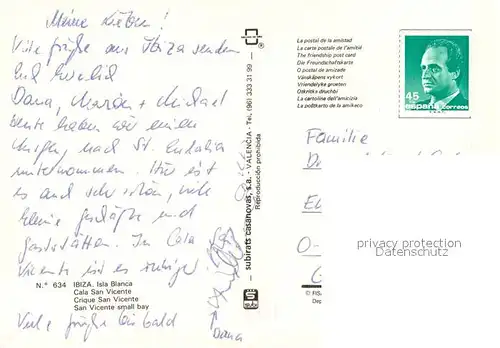 Meine Lieben!
Viele Grüße aus Ibiza senden
Euch herzlich
Dana, Marion + Michael
heute haben wir einen
Ausflug nach St. Eulalia
unternommen. Hier ist
es auch sehr schön, viele
kleine Geschäfte und
Gaststätten. In Cala
Vicente ist es ruhiger.
N.° 634 IBIZA. Isla Blanca
Cala San Vicente
Crique San Vicente
San Vicente small bay
Viele Grüße bis bald
Dana
subirats casanovas, s.a. - VALENCIA - Tel. (96) 333 31 99
Reproducción prohibida
La postal de la amistad
La carte postale de l'amitié
The friendship post card
Die Freundschaftskarte
O postal de amizade
Vänskapens vykort
La cartoline dell'amicizia
45
españa correos
Familie
D
E
O-
privacy protection
Datenschutz
© FIS
Dep